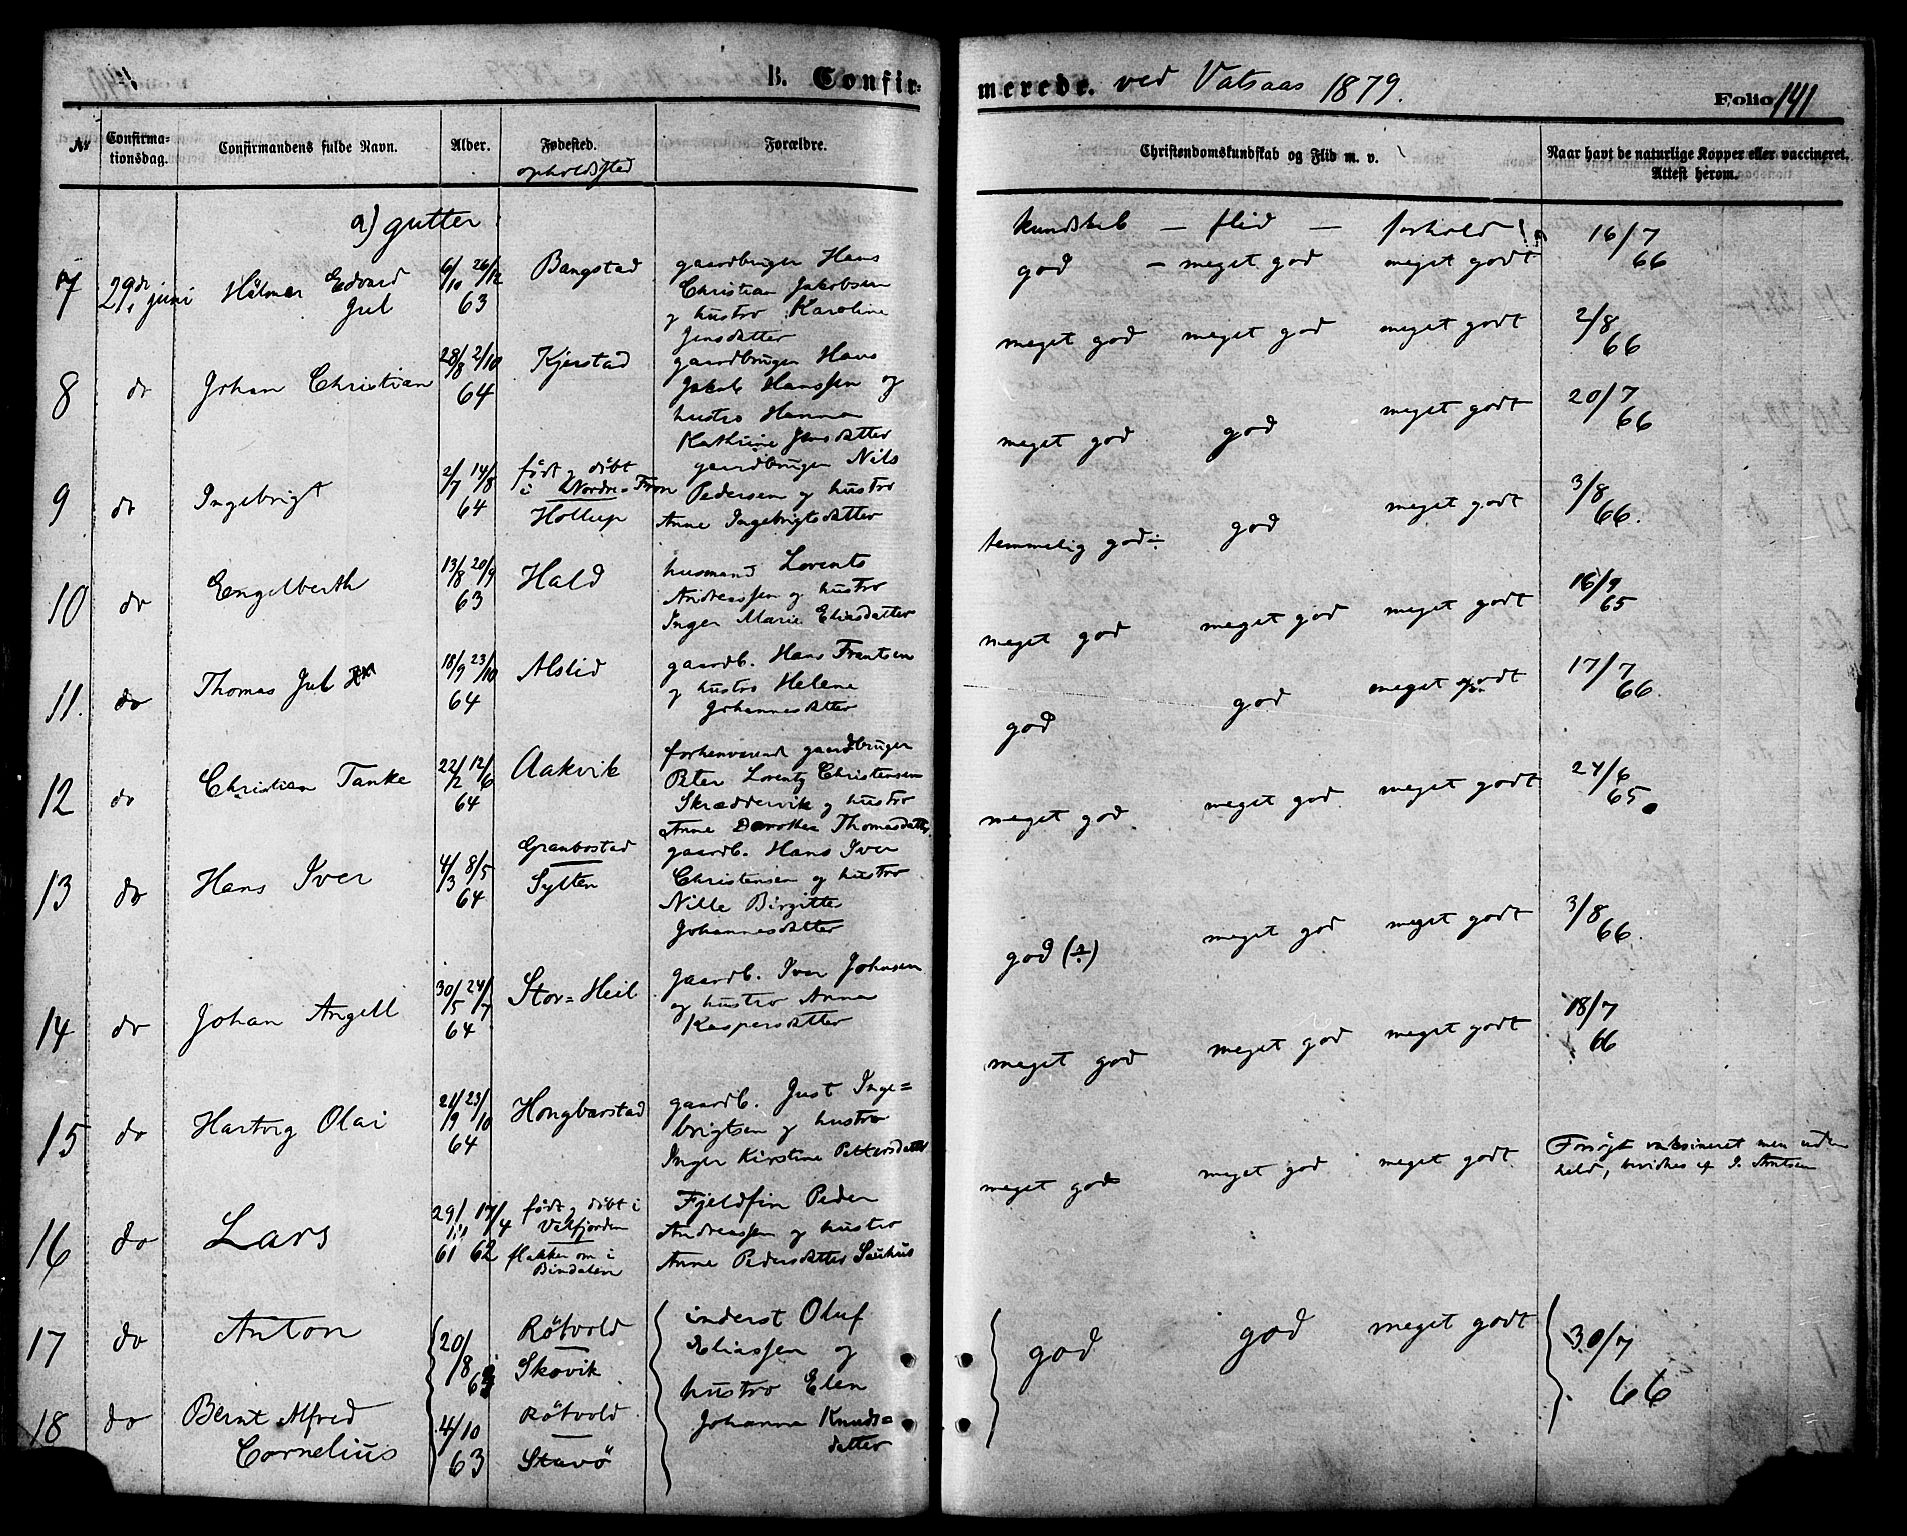 B. Confir-
merede. ved Vatsaas 1879.
Folio 141
No
Confirma-
tionsdag.
Confirmandens fulde Navn.
Alder.
Fødested.
opholdssted
Forældre.
Christendomskundskab og Flid m. v.
Naar havt de naturlige Kopper eller vaccineret.
Attest herom.
a) gutter:
kundskab – flid – forhold
7 29de juni Hilmar Edvard
Jul
6/10 26/12
63
Bangstad
gaardbruger Hans
Christian Jakobsen
og hustro Karoline
Jensdatter
god – meget god meget godt
16/7
66
8 do Johan Christian
28/8 2/10
64
Kjerstad
gaardbruger Hans
Jakob Hanssen og
hustro Hanna
Kathrine Jensdatter
meget god meget god meget godt
2/8
66
9 do Ingebrigt
2/7 14/8
64
født og döbt
i Nordre-Fron
Hollup
gaardbruger Nils
Pedersen og hustro
Anne Ingebrigtsdatter
meget god god meget godt
20/7
66
10 do Engelberth
13/8 20/9
63
Hald
husmand Lorents
Andreassen og hustro
Inger Marie Eliasdatter
temmelig god÷ god meget godt
3/8
66.
11. do Thomas Jul
18/9 23/10
64
Alslid
gaardb. Hans Frantsen
og hustro Helene
Johannesdatter
meget god meget god meget godt
16/9
65
12 do Christian Tanke
22/2 12/6
64
Aakvik
forhenværend gaardbruger
Peter Lorentz Christensen
Skræddervik og hustro
Anne Dorothea Thomasdatter
god god meget godt
17/7
66.
13 do Hans Iver
4/3 8/5
64
Granbostad
Sylten
gaardb. Hans Iver
Christensen og hustro
Nille Birgitte
Johannesdatter
meget god meget god meget godt
24/6
65
14 do Johan Angell
30/5 24/7
64
Stor=Heil
gaardb. Iver Johnsen
og hustro Anna
Kaspersdatter
god (÷) meget god meget godt
3/8
66.
15 do Hartvig Olai
21/9 23/10
64
Hongbarstad
gaardb. Just Inge=
brigtsen og hustro
Inger Kirstine Pettersdatter
meget god meget god meget godt
18/7
66
16 do Lars
29/11 17/4
61 62
født og döbt i
Velfjorden
flakker om i
Bindalen
Fjeldfin Peder
Andreassen og hustro
Anne Pedersdatter
meget god meget god meget godt.
Forsögt vaksineret men uden
held, bevidnes af J. Arntsen
17 do Anton
20/8
63
Røtvold
Skovik
inderst Oluf
Eliassen og
hustro Elen
Johanna Knuds=
datter
god god meget godt
30/7
66
18 do Bernt Alfred
Cornelius
4/10
63
Røtvold
Stavö